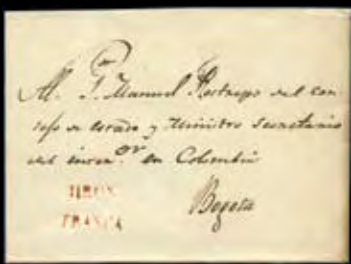 Al. J. Manuel Restrepo del Con-
sejo de Estado y Ministro Secretario
del interr.or en Colombia
Bogota
JIRON
FRANCA